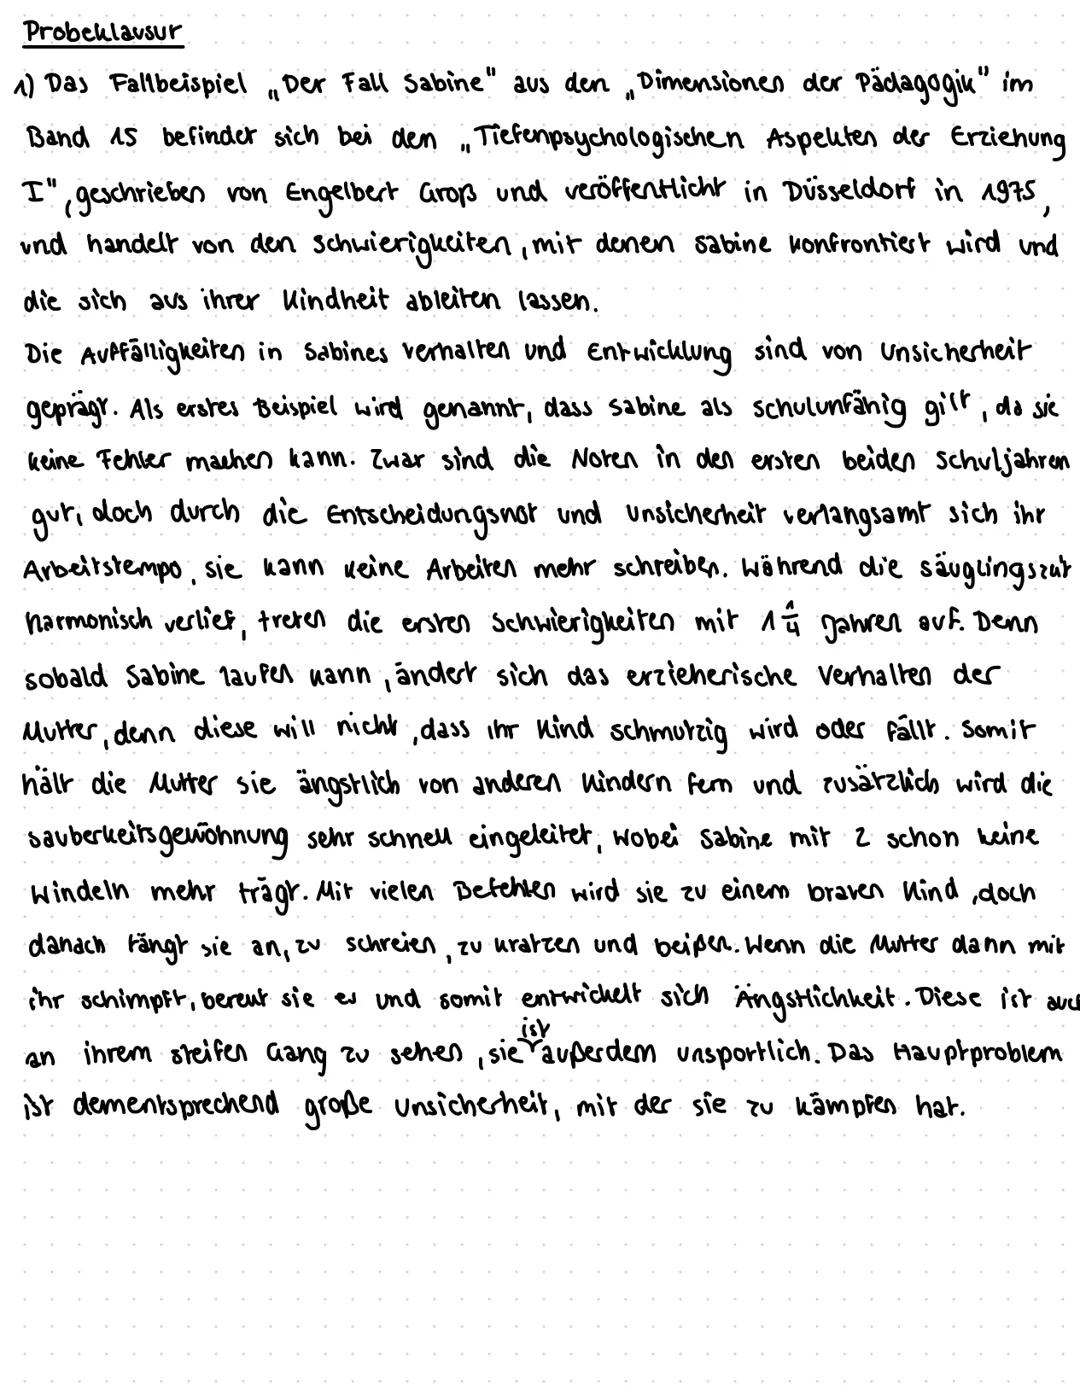 Probeklausur
1) Das Fallbeispiel „Der Fall Sabine" aus den „Dimensionen der Pädagogik" im
Band 15 befindet sich bei den „Tiefenpsychologischen Aspekten der Erziehung
I", geschrieben von Engelbert Groß und veröffentlicht in Düsseldorf in 1975,
und handelt von den Schwierigkeiten, mit denen Sabine konfrontiert wird und
die sich aus ihrer Kindheit ableiten lassen.
Die Auffälligkeiten in Sabines Verhalten und Entwicklung sind von Unsicherheit
geprägt. Als erstes Beispiel wird genannt, dass Sabine als schulunfähig gilt, da sie
keine Fehler machen kann. Zwar sind die Noten in den ersten beiden Schuljahren
gut, doch durch die Entscheidungsnot und Unsicherheit verlangsamt sich ihr
Arbeitstempo, sie kann keine Arbeiten mehr schreiben. Während die Säuglingszeit
harmonisch verlief, treten die ersten Schwierigkeiten mit 1 1/4 Jahren auf. Denn
sobald Sabine laufen kann, ändert sich das erzieherische Verhalten der
Mutter, denn diese will nicht, dass ihr Kind schmutzig wird oder fällt. Somit
hält die Mutter sie ängstlich von anderen Kindern fern und zusätzlich wird die
Sauberkeitsgewöhnung sehr schnell eingeleitet, wobei Sabine mit 2 schon keine
Windeln mehr trägt. Mit vielen Befehlen wird sie zu einem braven Kind, doch
danach fängt sie an, zu schreien, zu kratzen und beißen. Wenn die Mutter dann mit
ihr schimpft, bereut sie es und somit entwickelt sich Ängstlichkeit. Diese ist auch
an ihrem steifen Gang zu sehen, sie ist außerdem unsportlich. Das Hauptproblem
ist dementsprechend große Unsicherheit, mit der sie zu kämpfen hat.